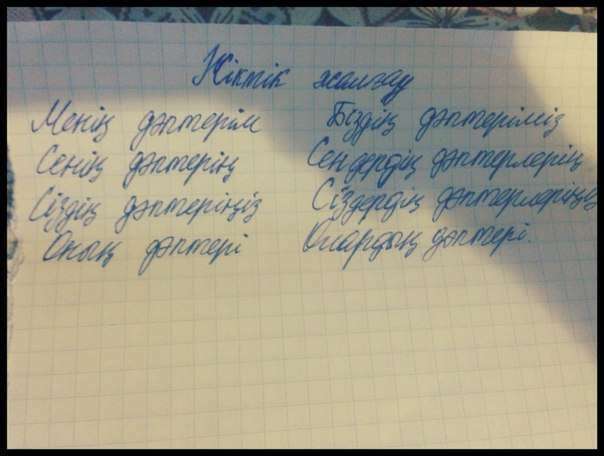 Жіктік жалғау
Менің дәптерім Біздің дәптеріміз
Сенің дәптерің Сендердің дәптерлерің
Сіздің дәптеріңіз Сіздердің дәптерлеріңіз
Оның дәптері Олардың дәптері.